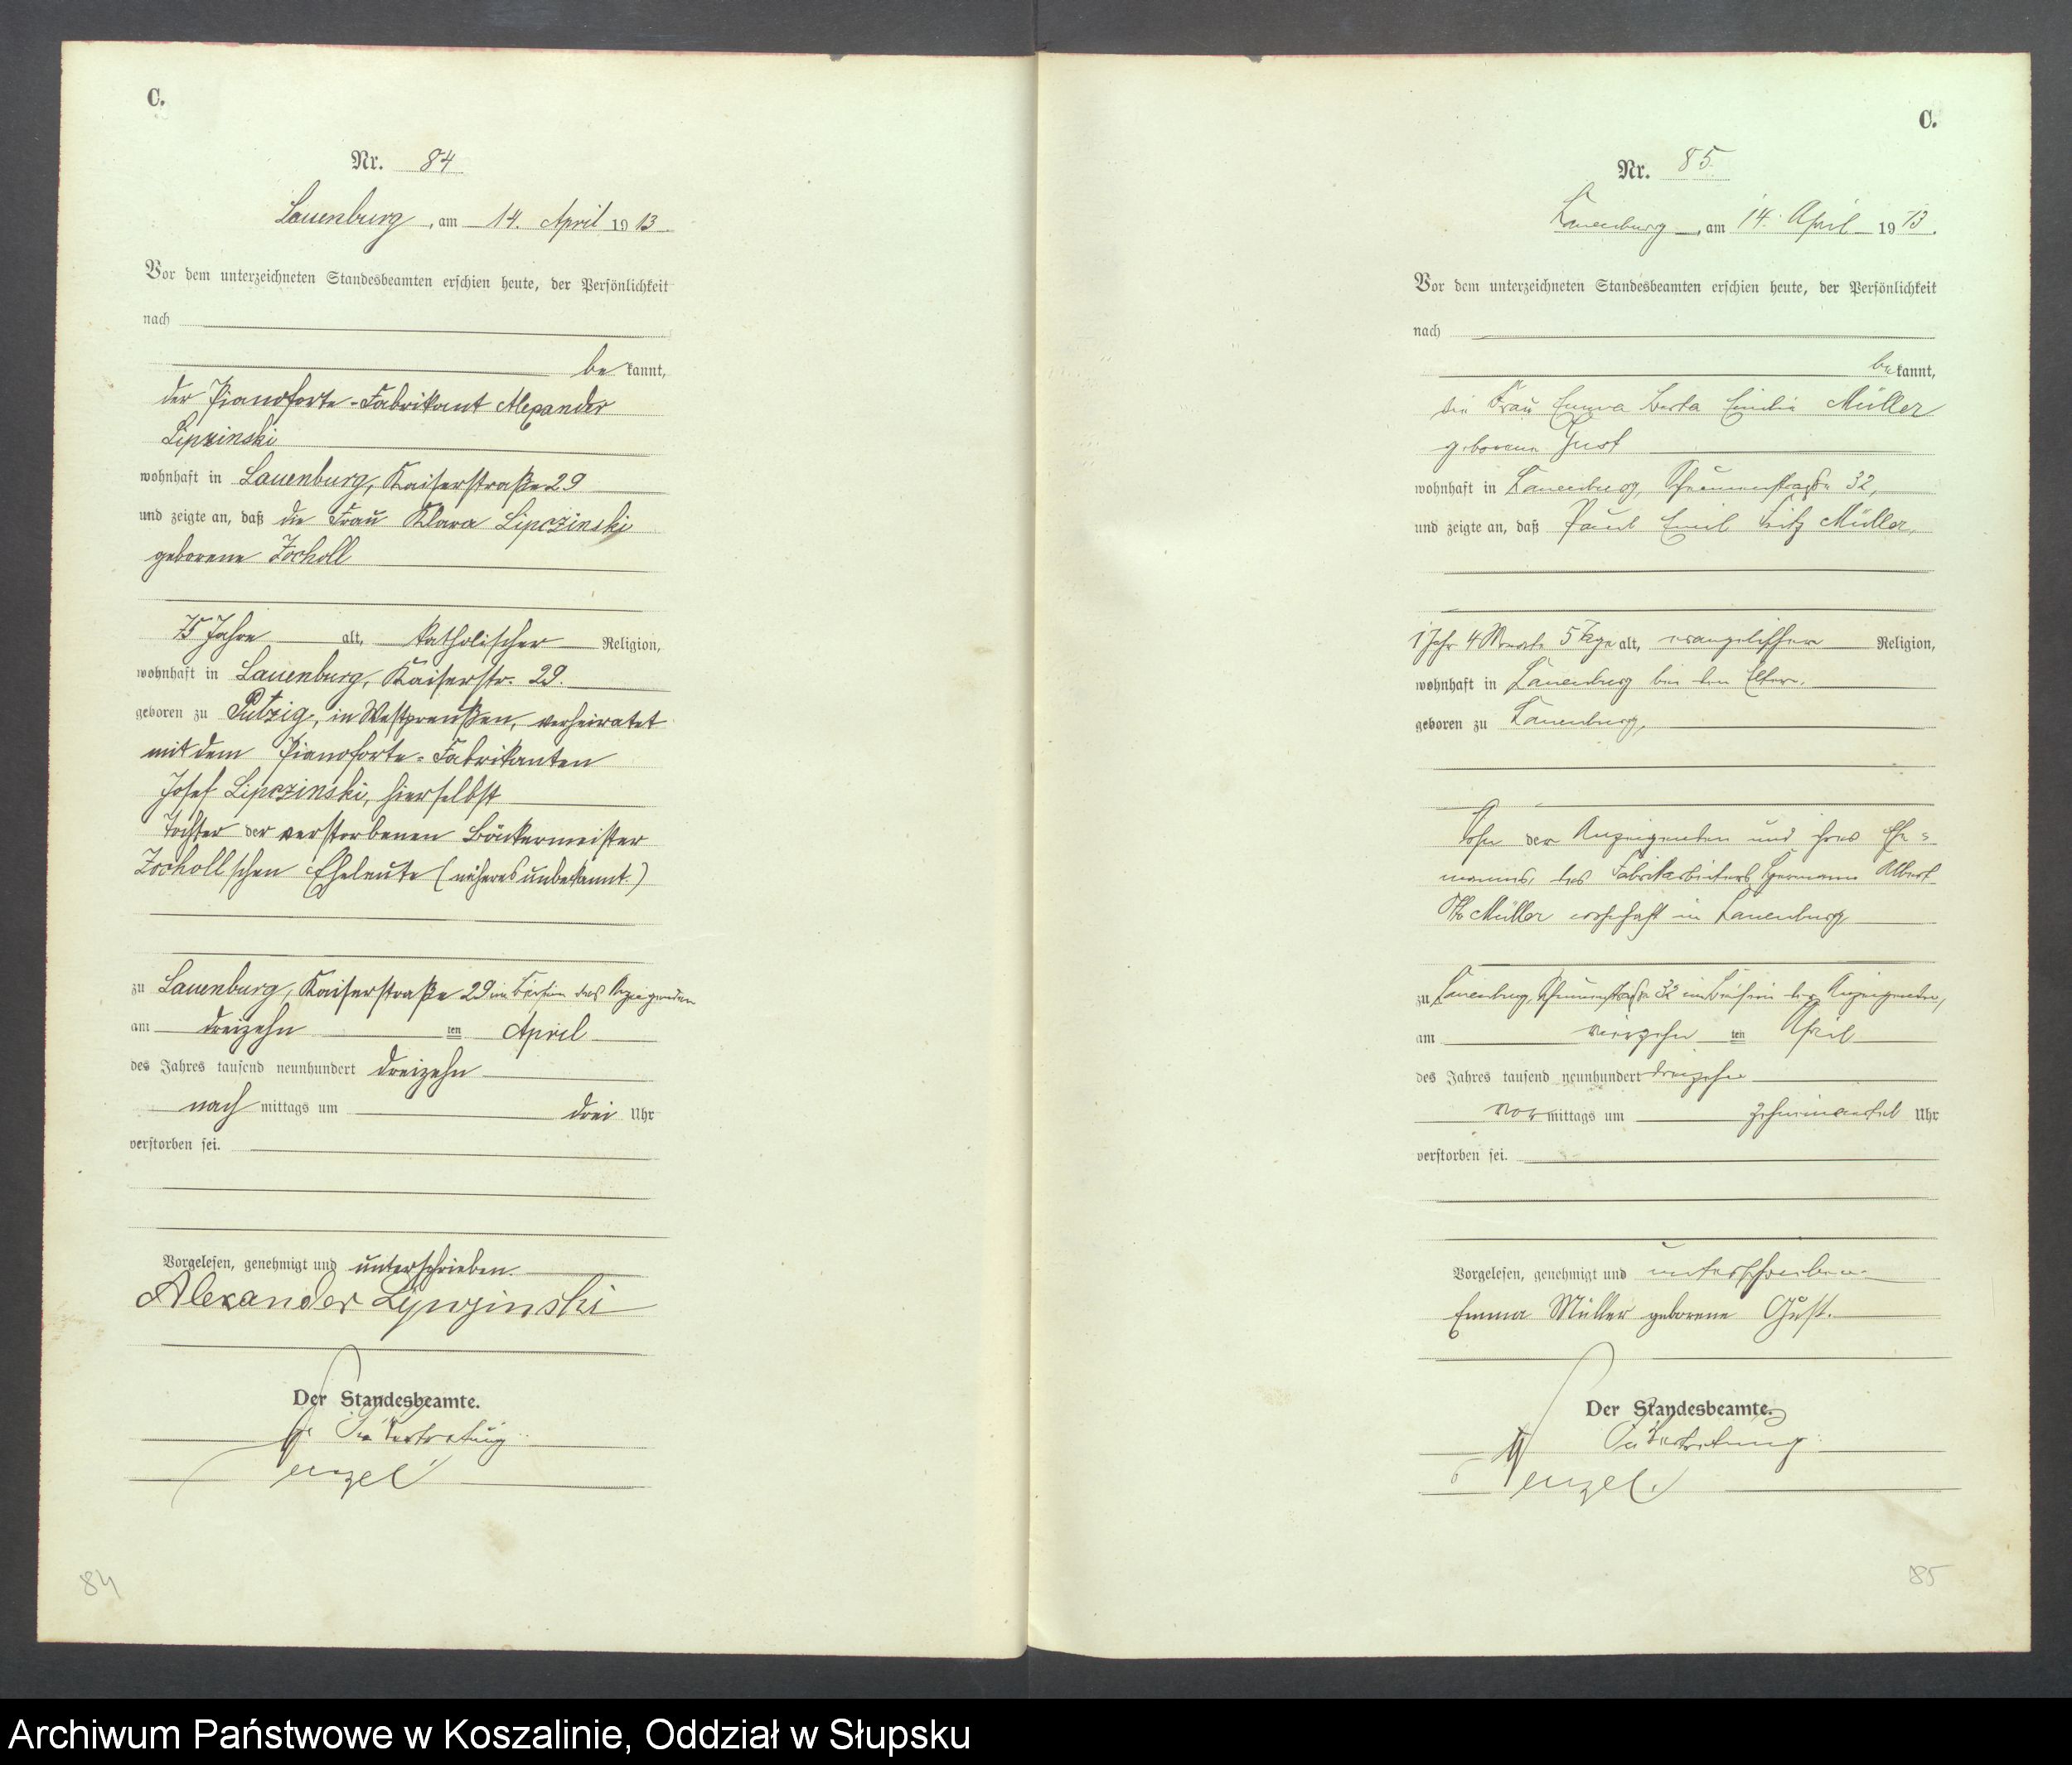 C.
Nr. 84
Lauenburg, am 14. April 1913.
Vor dem unterzeichneten Standesbeamten erschien heute, der Persönlichkeit
nach
be kannt,
der Pianoforte-Fabrikant Alexander
Lipzinski
wohnhaft in Lauenburg, Kaiserstraße 29
und zeigte an, daß die Frau Klara Lipczinski
geborene Zocholl
75 Jahre alt, katholischer Religion,
wohnhaft in Lauenburg, Kaiserstr. 29.
geboren zu Putzig, in Westpreußen, verheiratet
mit dem Pianoforte-Fabrikanten
Josef Lipczinski, hierselbst
Tochter der verstorbenen Bäckermeister
Zocholl'schen Eheleute (näheres unbekannt.)
zu Lauenburg, Kaiserstraße 29 im Beisein des Anzeigenden
am dreizehn ten April
des Jahres tausend neunhundert dreizehn
nach mittags um drei Uhr
verstorben sei.
Vorgelesen, genehmigt und unterschrieben.
Alexander Lipczinski
Der Standesbeamte.
In Vertretung
84
C.
Nr. 85.
Lauenburg, am 14. April 1913.
Vor dem unterzeichneten Standesbeamten erschien heute, der Persönlichkeit
nach
be kannt,
die Frau Emma Berta Emilie Müller
geborene Gust
wohnhaft in Lauenburg, Scheunenstraße 32,
und zeigte an, daß Paul Emil Fritz Müller,
1 Jahr 4 Monate 5 Tage alt, evangelischer Religion,
wohnhaft in Lauenburg bei den Eltern,
geboren zu Lauenburg,
Sohn der Anzeigenden und ihres Ehe=
mannes, des Fabrikarbeiters Hermann Albert
Otto Müller wohnhaft in Lauenburg
zu Lauenburg, Scheunenstraße 32 im Beisein der Anzeigenden,
am vierzehn ten April
des Jahres tausend neunhundert dreizehn
vor mittags um Uhr
verstorben sei.
Vorgelesen, genehmigt und unterschrieben.
Emma Müller geborene Gust.
Der Standesbeamte.
In Vertretung
85
Archiwum Państwowe w Koszalinie, Oddział w Słupsku